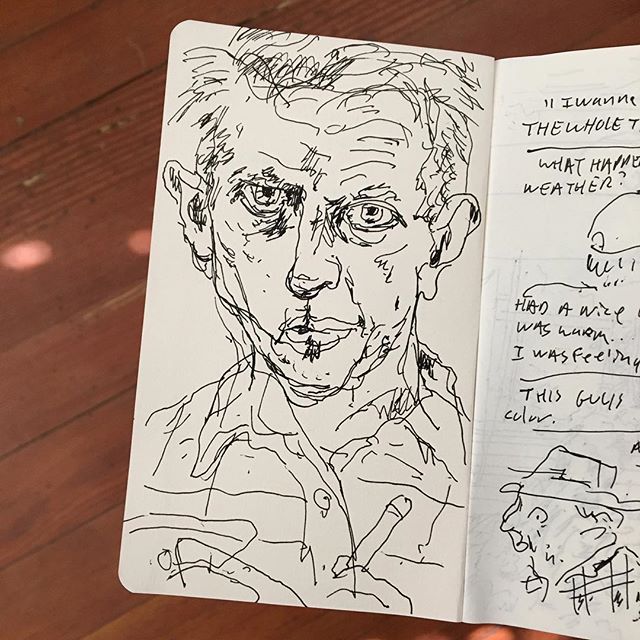 "I wanna
THE WHOLE T
WHAT HAPPE
WEATHER?
HAD A NICE
WAS WARM...
I WAS FEELING
THIS GUYS
COLOR.
A